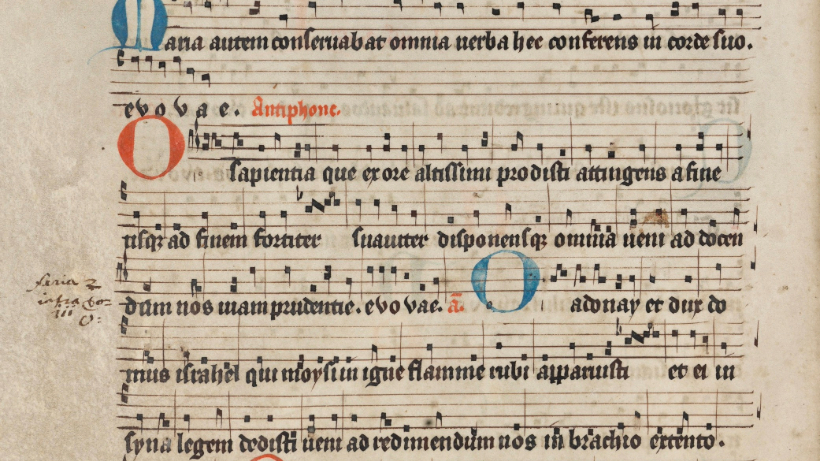 Maria autem conseruabat omnia uerba hec conferens in corde suo.
evovae. Antiphone.
O sapientia que ex ore altissimi prodisti attingens a fine
usq; ad finem fortiter suauiter disponensq; omnia ueni ad docen
dum nos uiam prudentie. evovae. a. O adonay et dux do
mus israhel qui moysi in igne flamme rubi apparuisti et ei in
syna legem dedisti ueni ad redimendum nos in brachio extento.
feria 2